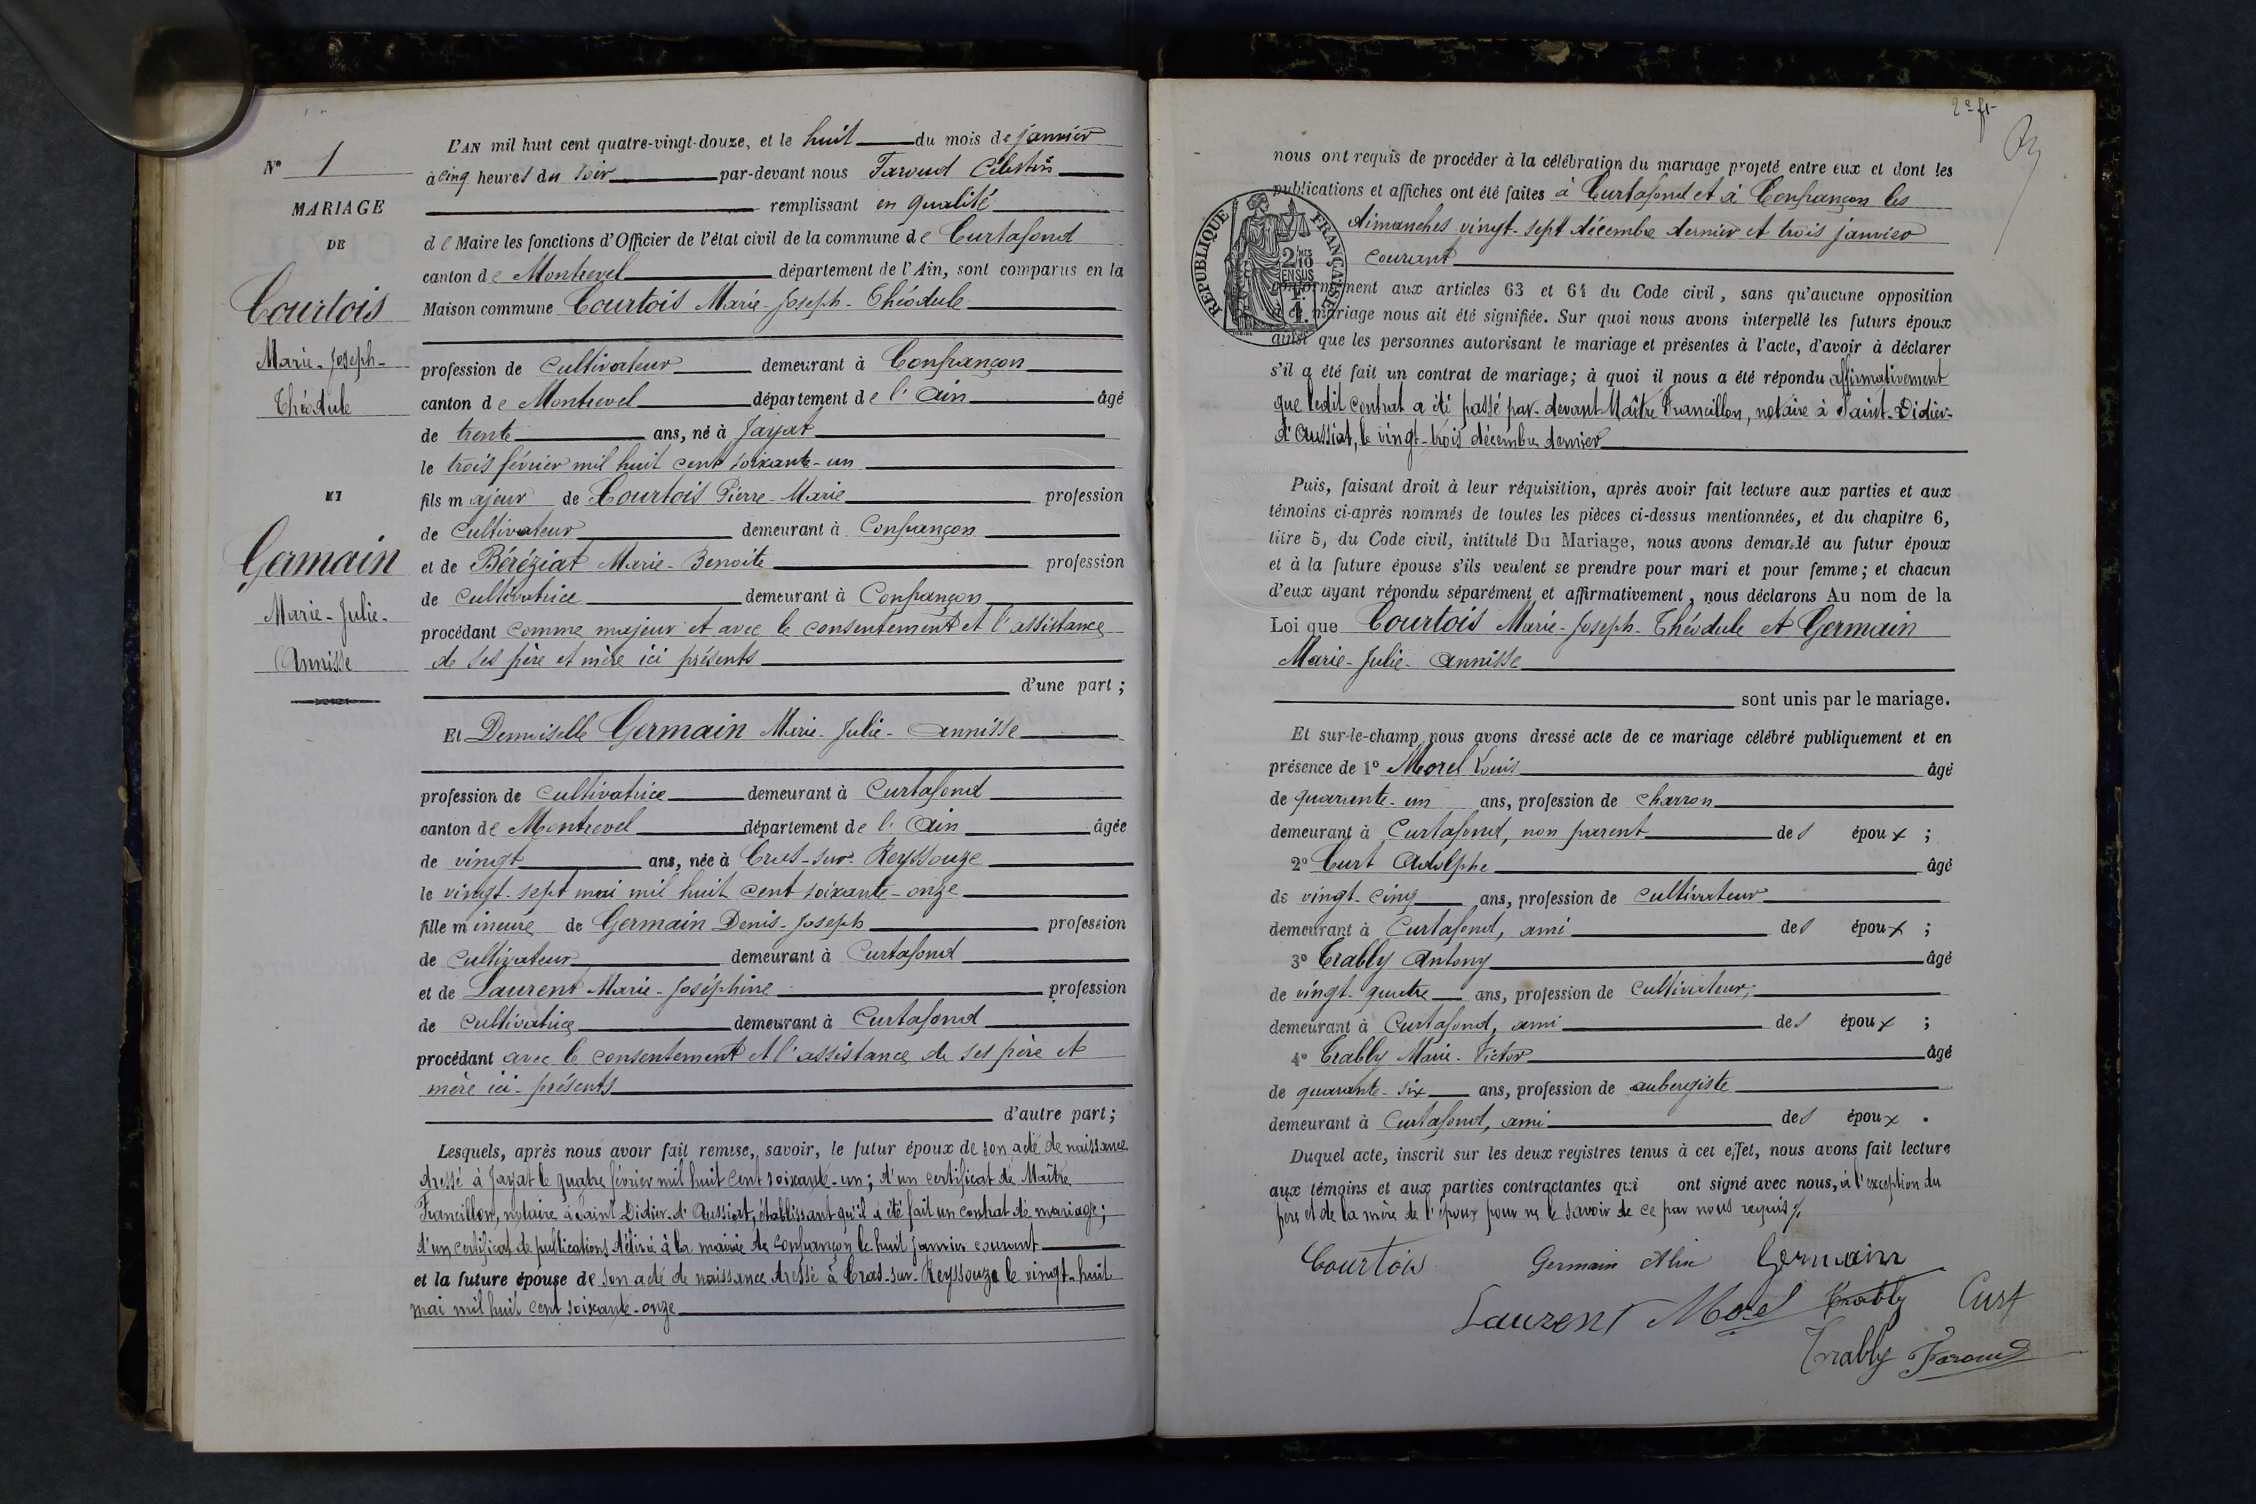 N° 1
MARIAGE
DE
Courtois
Marie-Joseph-
Théodule
ET
Germain
Marie-Julie-
Annisse
L'AN mil huit cent quatre-vingt-douze, et le huit du mois de janvier
à cinq heures du soir par-devant nous Faroud Célestin
remplissant en qualité
de Maire les fonctions d'Officier de l'état civil de la commune de Curtafond
canton de Montrevel département de l'Ain, sont comparus en la
Maison commune Courtois Marie-Joseph-Théodule
profession de cultivateur demeurant à Confrançon
canton de Montrevel département de l'Ain âgé
de trente ans, né à Jayat
le trois février mil huit cent soixante-un
fils majeur de Courtois Pierre-Marie profession
de cultivateur demeurant à Confrançon
et de Béréziat Marie-Benoite profession
de cultivatrice demeurant à Confrançon
procédant comme majeur et avec le consentement et l'assistance
de ses père et mère ici présents
d'une part;
Et Demoiselle Germain Marie-Julie-Annisse
profession de cultivatrice demeurant à Curtafond
canton de Montrevel département de l'Ain âgée
de vingt ans, née à Cras-sur-Reyssouze
le vingt-sept mai mil huit cent soixante-onze
fille mineure de Germain Denis-Joseph profession
de cultivateur demeurant à Curtafond
et de Laurent Marie-Joséphine profession
de cultivatrice demeurant à Curtafond
procédant avec le consentement et l'assistance de ses père et
mère ici-présents
d'autre part;
Lesquels, après nous avoir fait remise, savoir, le futur époux de son acte de naissance
dressé à Jayat le quatre février mil huit cent soixante-un; d'un certificat de Maître
Francillon, notaire à Saint-Didier-d'Aussiat, établissant qu'il a été fait un contrat de mariage;
d'un certificat de publications délivré à la mairie de Confrançon le huit janvier courant
et la future épouse de son acte de naissance dressé à Cras-sur-Reyssouze le vingt-huit
mai mil huit cent soixante-onze
nous ont requis de procéder à la célébration du mariage projeté entre eux et dont les
publications et affiches ont été faites à Curtafond et à Confrançon les
dimanches vingt-sept décembre dernier et trois janvier
courant
REPUBLIQUE FRANÇAISE
2/10 EN SUS
conformément aux articles 63 et 64 du Code civil, sans qu'aucune opposition
à ce mariage nous ait été signifiée. Sur quoi nous avons interpellé les futurs époux
ainsi que les personnes autorisant le mariage et présentes à l'acte, d'avoir à déclarer
s'il a été fait un contrat de mariage; à quoi il nous a été répondu affirmativement
que ledit contrat a été passé par-devant Maître Francillon, notaire à Saint-Didier-
d'Aussiat, le vingt-trois décembre dernier
Puis, faisant droit à leur réquisition, après avoir fait lecture aux parties et aux
témoins ci-après nommés de toutes les pièces ci-dessus mentionnées, et du chapitre 6,
titre 5, du Code civil, intitulé Du Mariage, nous avons demandé au futur époux
et à la future épouse s'ils veulent se prendre pour mari et pour femme; et chacun
d'eux ayant répondu séparément et affirmativement, nous déclarons Au nom de la
Loi que Courtois Marie-Joseph-Théodule et Germain
Marie-Julie-Annisse
sont unis par le mariage.
Et sur-le-champ nous avons dressé acte de ce mariage célébré publiquement et en
présence de 1° Morel Louis âgé
de quarante-un ans, profession de charron
demeurant à Curtafond, non parent des époux;
2° Curt Adolphe âgé
de vingt-cinq ans, profession de cultivateur
demeurant à Curtafond, ami des époux;
3° Trably Antony âgé
de vingt-quatre ans, profession de cultivateur,
demeurant à Curtafond, ami des époux;
4° Trably Marie-Victor âgé
de quarante-six ans, profession de aubergiste
demeurant à Curtafond, ami des époux.
Duquel acte, inscrit sur les deux registres tenus à cet effet, nous avons fait lecture
aux témoins et aux parties contractantes qui ont signé avec nous, à l'exception du
père et de la mère de l'époux pour ne le savoir de ce par nous requis
Courtois Germain Germain
Laurent Morel Trably Curt
Trably Faroud